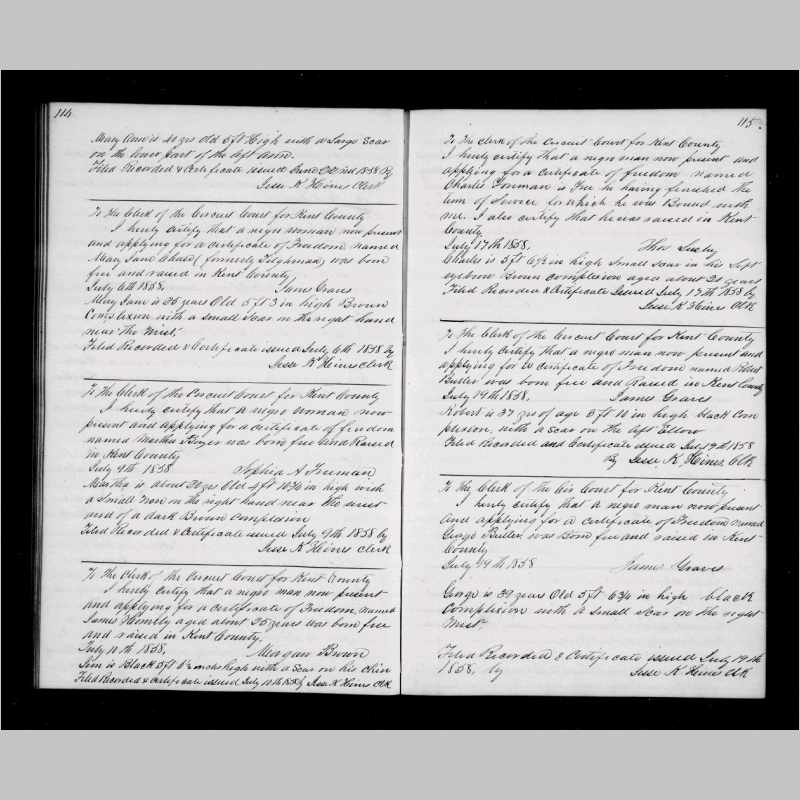 114
Mary Ann is 40 yrs Old 5 ft High with a Large Scar
on the lower part of the left Arm.
Filed Recorded & Certificate issued June 1858 By
Jesse K Hines Clerk
To the Clerk of the Circuit Court for Kent County
I henly certify that a negro woman now present
and applying for a certificate of Freedom named
Mary Jane Chase (formerly Tilghman) was born
free and raised in Kent County
July 6th 1858. James Graves
Mary Jane is 35 years Old 5 ft 3 in high Brown
Complexion with a small Scar on the right hand
near the Wrist.
Filed Recorded & Certificate issued July 6th 1858 By
Jesse K Hines clerk
To the Clerk of the Circuit Court for Kent County
I henly certify that a negro woman now
present and applying for a certificate of freedom
named Martha was born free and Raised
in Kent County
July 9th 1858 Sophia A Freeman
Martha is about 30 yrs Old 4 ft 10 3/4 in high with
a Small on the right hand near the wrist
and of a dark Brown Complexion
Filed Recorded & Certificate issued July 9th 1858 by
Jesse K Hines clerk
To the Clerk of the Circuit Court for Kent County
I henly certify that a negro man now present
and applying for a certificate of Freedom named
James aged about 25 years was born free
and raised in Kent County.
July 10th 1858. Meargan Brown
Jim is Black 5 ft inches high with a Scar on his chin
Filed Recorded & Certificate issued July 10th 1858 by Jesse K Hines Clk
115.
To the Clerk of the Circuit Court for Kent County
I henly certify that a negro man now present and
applying for a certificate of freedom named
Charles is Free he having finished the
term of Service for which he was Bound with
me. I also certify that he was raised in Kent
County
July 17th 1858. Thos
Charles is 5 ft 6 1/2 in high Small Scar in his Left
eyebrow Brown complexion aged about 21 years
Filed Recorded & Certificate Issued July 17th 1858 by
Jesse K Hines Clk
To the Clerk of the Circuit Court for Kent County
I henly certify that a negro man now present and
applying for a certificate of Freedom named Robert
Butler was born free and Raised in Kent County
July 19th 1858. James Graves
Robert is 37 yrs of age 5 ft 10 in high black Com
plexion, with a Scar on the left Elbow
Filed Recorded and Certificate issued July 19th 1858
By Jesse K Hines Clk
To the Clerk of the Cir Court for Kent County
I henly certify that a negro man now present
and applying for a certificate of Freedom named
George Butler was born free and raised in Kent
County
July 19th 1858 James Graves
George is 39 years Old 5 ft 6 3/4 in high black
Complexion with a small Scar on the right
Wrist.
Filed Recorded & Certificate issued July 19th
1858. by Jesse K Hines Clk